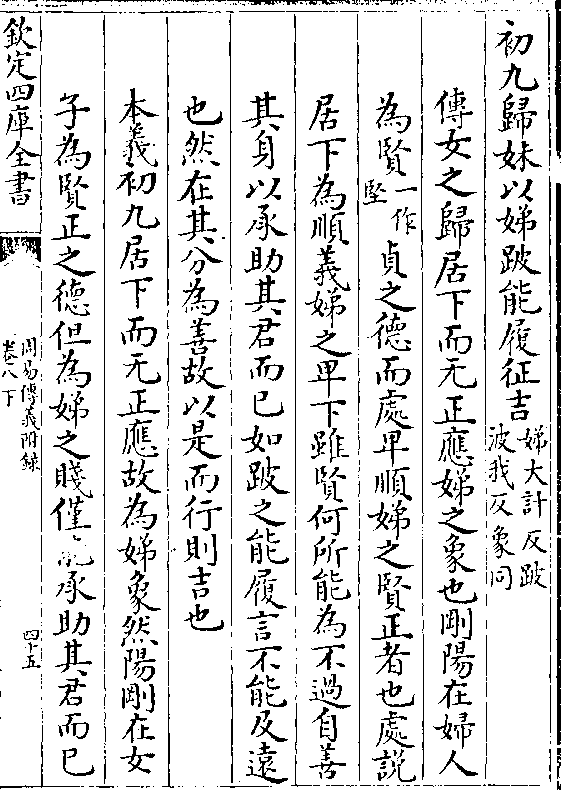 初九歸妹以娣跛能履征吉娣大計反跛
波我反象同
傳女之歸居下而无正應娣之象也剛陽在婦人
為賢一作
堅貞之德而處卑順娣之賢正者也處説
居下為順義娣之卑下雖賢何所能為不過自善
其身以承助其君而已如跛之能履言不能及遠
也然在其分為善故以是而行則吉也
本義初九居下而无正應故為娣象然陽剛在女
子為賢正之德但為娣之賤僅承助其君而已
欽定四庫全書
周易傳義附錄
卷八下
四十五